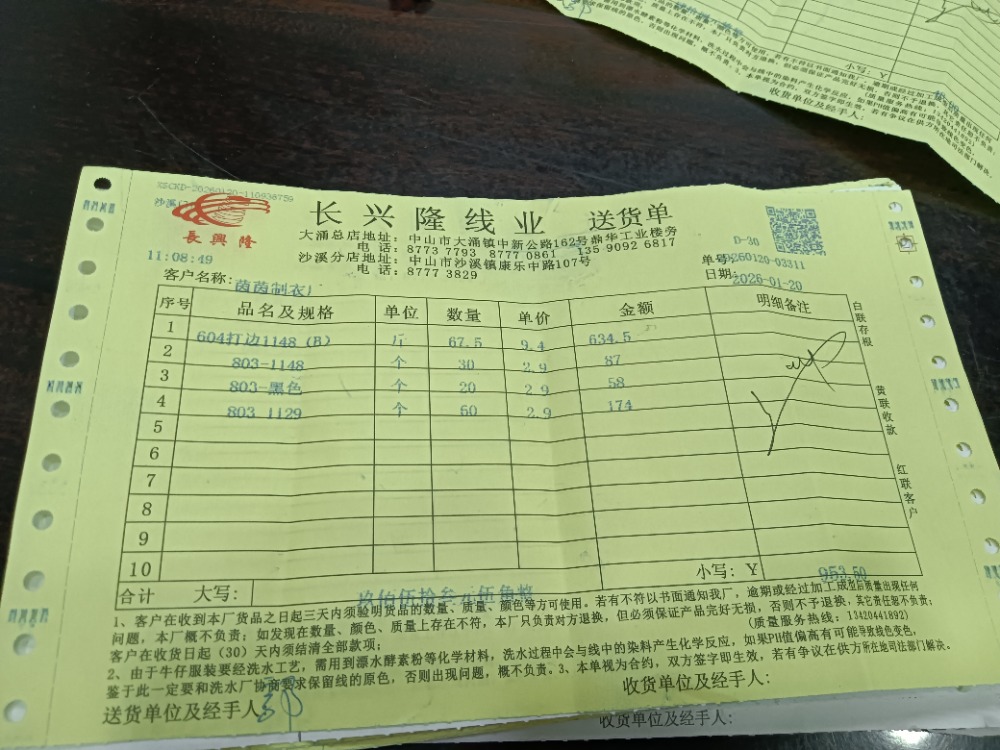 XSCKD-20260120-110938759
沙溪
長興隆
长兴隆线业 送货单
大涌总店地址：中山市大涌镇中新公路162号鼎华工业楼旁
电话：8773 7793 8777 0861 135 9092 6817
沙溪分店地址：中山市沙溪镇康乐中路107号
电话：8777 3829
D-30
11:08:49
单号:
20260120-03311
客户名称: 茵茵制衣厂
日期: 2026-01-20
序号 品名及规格 单位 数量 单价 金额 明细备注
1 604打边1148（B） 斤 67.5 9.4 634.5
2 803-1148 个 30 2.9 87
3 803-黑色 个 20 2.9 58
4 803 1129 个 60 2.9 174
5
6
7
8
9
10
白联存根
黄联收款
红联客户
合计 大写: 玖佰伍拾叁元伍角整 小写: Y 953.50
1、客户在收到本厂货品之日起三天内须验明货品的数量、质量、颜色等方可使用。若有不符以书面通知我厂，逾期或经过加工成型后质量出现任何
问题，本厂概不负责；如发现在数量、颜色、质量上存在不符，本厂只负责对方退换，但必须保证产品完好无损，否则不予退换，其它责任恕不负责；
客户在收货日起（30）天内须结清全部款项；
(质量服务热线: 13420441892)
2、由于牛仔服装要经洗水工艺，需用到漂水酵素粉等化学材料，洗水过程中会与线中的染料产生化学反应，如果PH值偏高有可能导致线色变色，
鉴于此一定要和洗水厂协商要求保留线的原色，否则出现问题，概不负责。3、本单视为合约，双方签字即生效，若有争议在供方所在地司法部门解决。
送货单位及经手人:
收货单位及经手人:
收货单位及经手人:
小写: Y
收货单位及经手人: